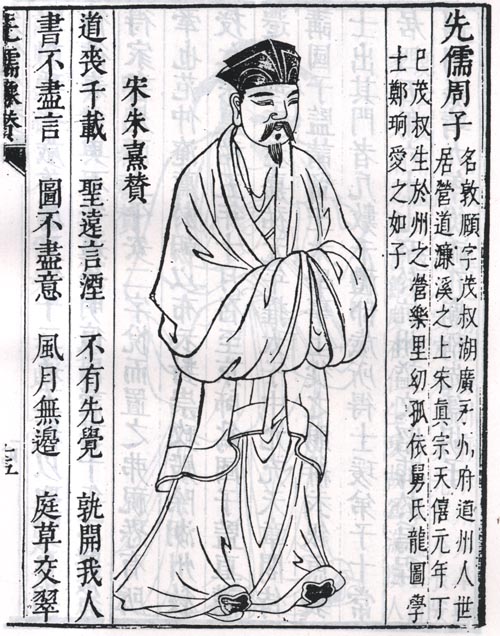 先儒周子
名敦頤字茂叔湖廣永州府道州人世
居營道濂溪之上宋真宗天僖元年丁
巳茂叔生於州之營樂里幼孤依舅氏龍圖學
士鄭珦愛之如子
宋朱熹贊
道丧千載 聖遠言湮 不有先覺 孰開我人
書不盡言 圖不盡意 風月無邉 庭草交翠
先儒像贊